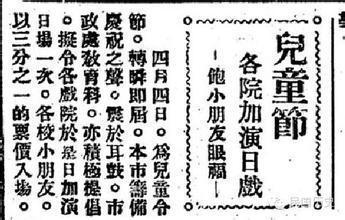 兒童節
各院加演日戲
—飽小朋友眼福—
四月四日。爲兒童令
節。轉瞬即屆。本市籌備
慶祝之聲。震於耳鼓。市
政處敎育科。亦積極提倡
。擬令各戲院於是日加演
日場一次。各校小朋友。
以三分之一的票價入場。